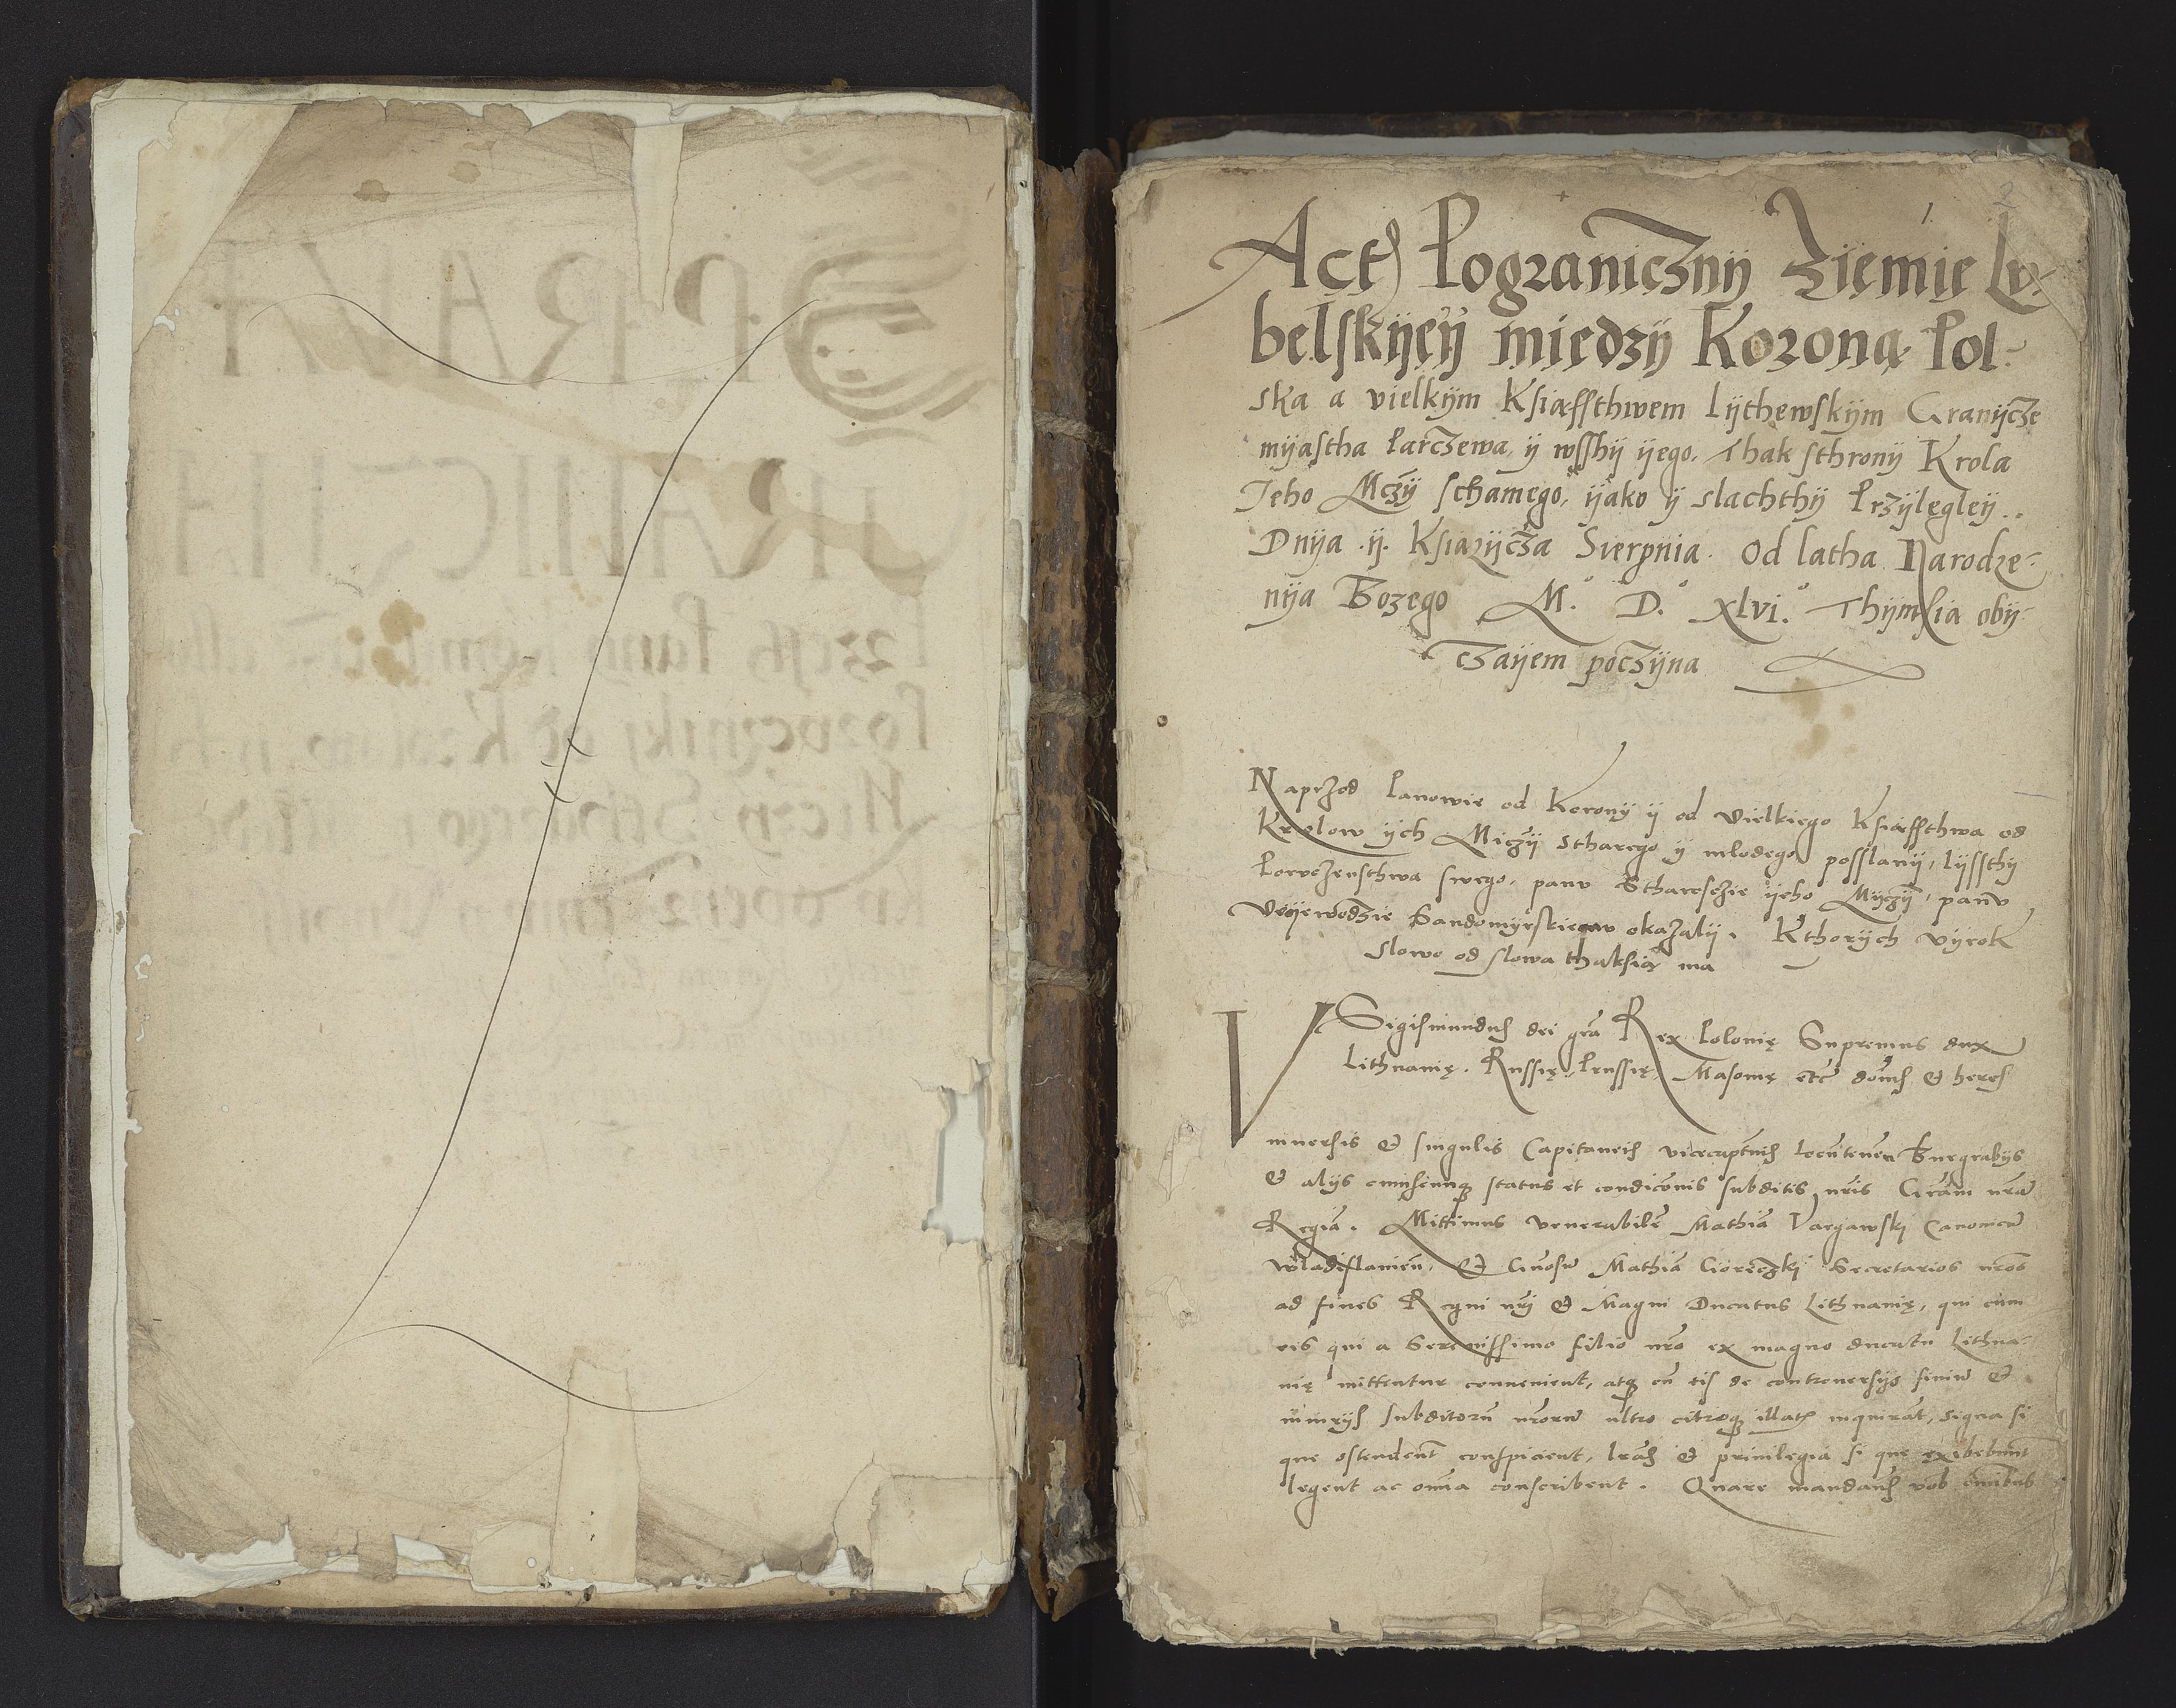 1.
2
Act9 Pograniczny Zÿemie Lv-
belskÿeÿ miedzÿ Koroną Pol-
ska a vielkÿm Ksiæsthwem Lÿthewskÿm Granÿcze
mÿastha Parczewa, ÿ wsshÿ ÿego. Thak sthronÿ Krola
Jeho Mczÿ schamego, ÿako ÿ slachthÿ Przÿlegleÿ..
Dnÿa .ÿ. Ksiązÿcza Sierpnia. Od latha Narodze-
nÿa Bozego M.° D.° xlvi.° Thÿmsia obÿ-
czaÿem poczÿna
Naprzod Panowie od Koronÿ ÿ od Vielkiego Ksiæsthwa od
Krolow ÿch Miczÿ stharego ÿ młodego posslanÿ, lÿssthÿ
Porvczensthwa swego, panv Stharosczie ÿeho Mÿczÿ, panv
Voÿewodzie Sandomÿrskiemv okazalÿ. Kthorÿch vÿrok
slowo od slowa thaksią ma
Sigismundus dei gra Rex Polonię Supremus dux
Lithuanię. Russię, Prussię, Masouię etc dominus & heres
Vniuersis & singulis Capitaneis vicecaptneis locumtenen Burgrabÿs
& alÿs cuiuscunq status et condiconis subditis nris Gram nram
Regiam. Mittimus venerabilem Mathiam Vargawski Canonicum
Wladislauien. & Gnosum Mathiam Gioreczki Secretarios nros
ad fines Regni nri & Magni Ducatus Lithuanię, qui cum
eis qui a Serenissimo filio nro ex magno ducatu Lithua-
nię mittentur conuenient, atq cum eis de controuersÿs finium &
iniurÿs subditorum nrorum ultro citroq illatis inquirant, signa si
que ostendent conspicient, lras & priuilegia si que exibebunt
legent ac omnia conscribent. Quare mandamus vob omnibus